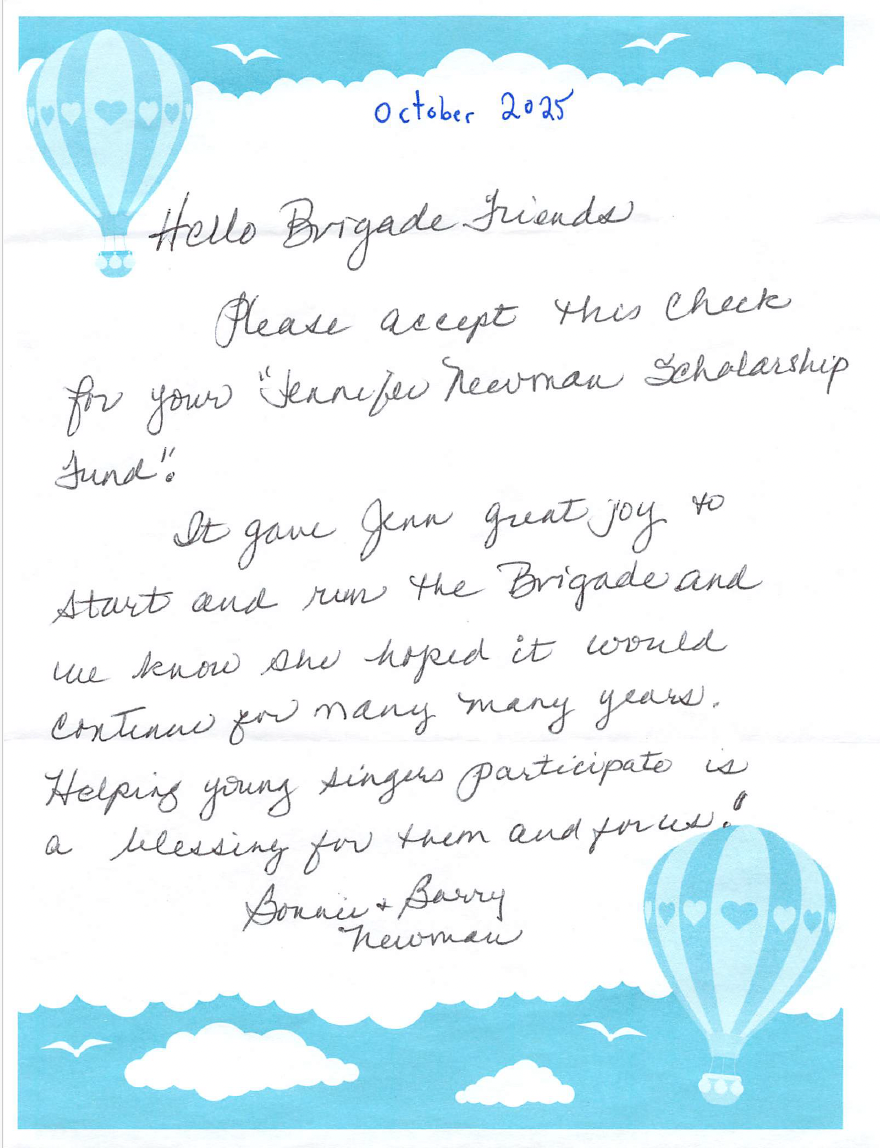 October 2025
Hello Brigade Friends
Please accept this check
for your "Jennifer Newman Scholarship
Fund".
It gave Jenn great joy to
start and run the Brigade and
we know she hoped it would
continue for many many years.
Helping young singers participate is
a blessing for them and for us!
Bonnie + Barry
Newman